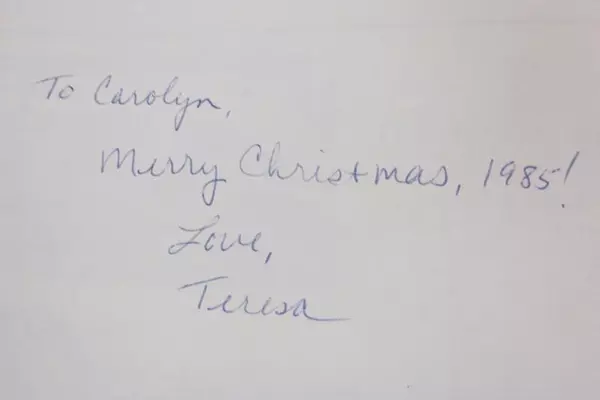 To Carolyn,
Merry Christmas, 1985!
Love,
Teresa